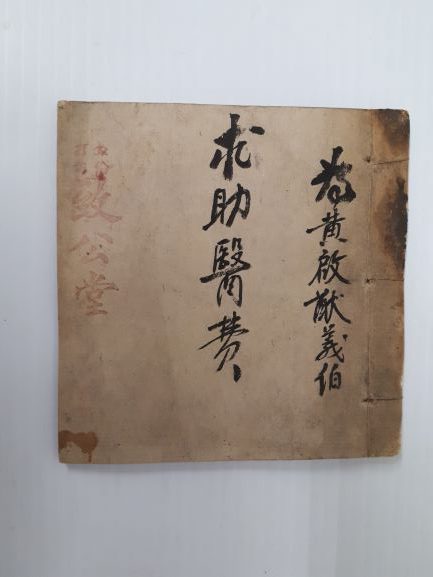 為黃啟猷義伯
求助醫費
致公堂